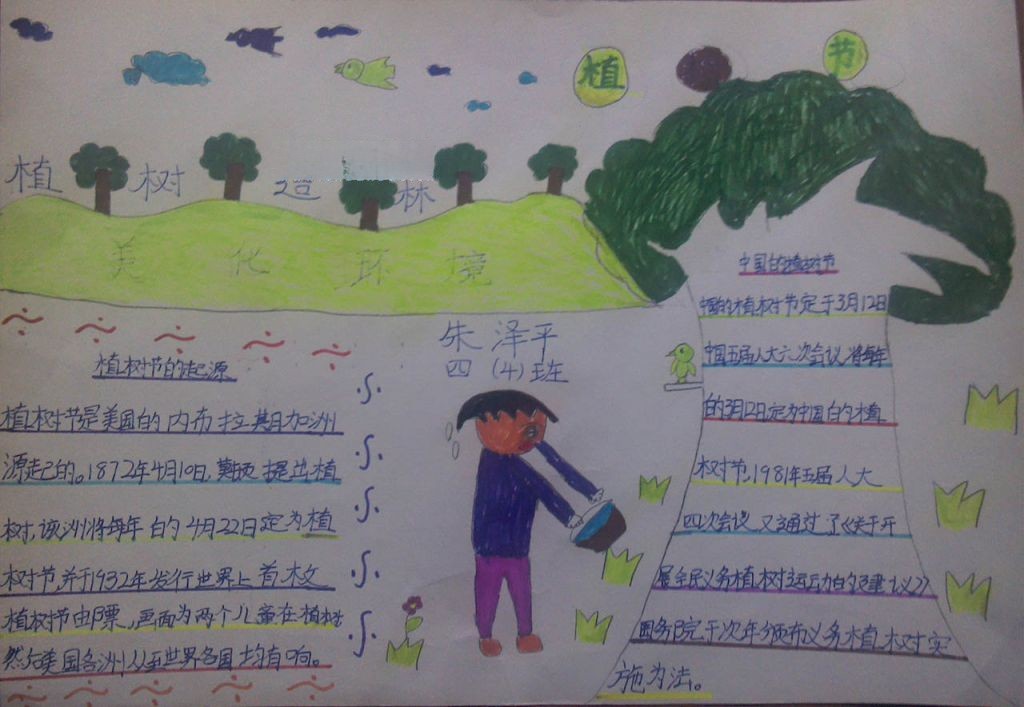 植 节
植 树 造 林
美 化 环 境
朱 泽 平
四 (4) 班
植树节的起源
植树节是美国的内布拉斯加洲
源起的。1872年4月10日,莫顿提出植
树,该洲将每年的4月22日定为植
树节,并于1932年发行世界上首枚
植树节邮票,画面为两个儿童在植树
美国各洲从至世界各国均有响。
中国的植树节
中国的植树节定于3月12日
中国五届人大六次会议,将每年
的3月12日定为中国的植
树节,1981年五届人大
四次会议又通过了《关于开
展全民义务植树运动的建议》
国务院于次年颁布义务植树实
施为法。